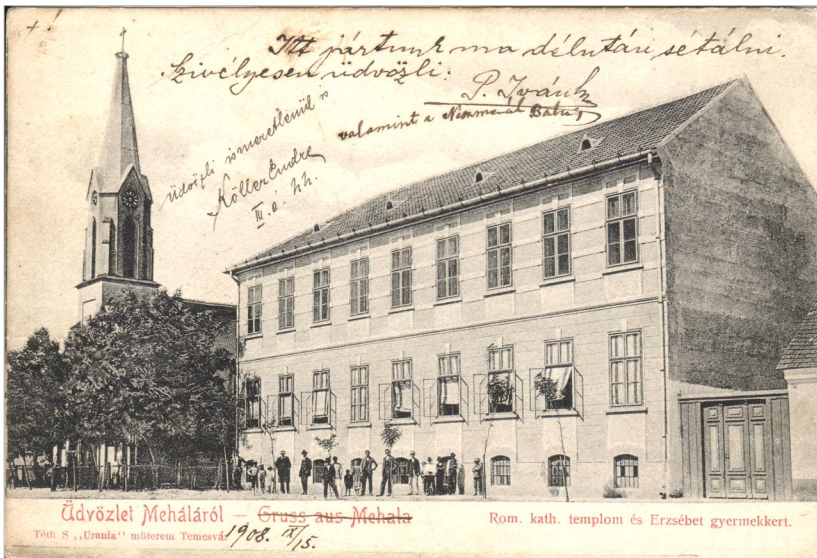 Itt jártunk ma délután sétálni.
Szivélyesen üdvözli:
P. Ivánk
valamint a
üdvözli ismeretlenül is
Köller Endre
III. é. hh.
Üdvözlet Meháláról – Gruss aus Mehala
Rom. kath. templom és Erzsébet gyermekkert.
Tóth S „Urania" müterem Temesvár
1908. IX/15.